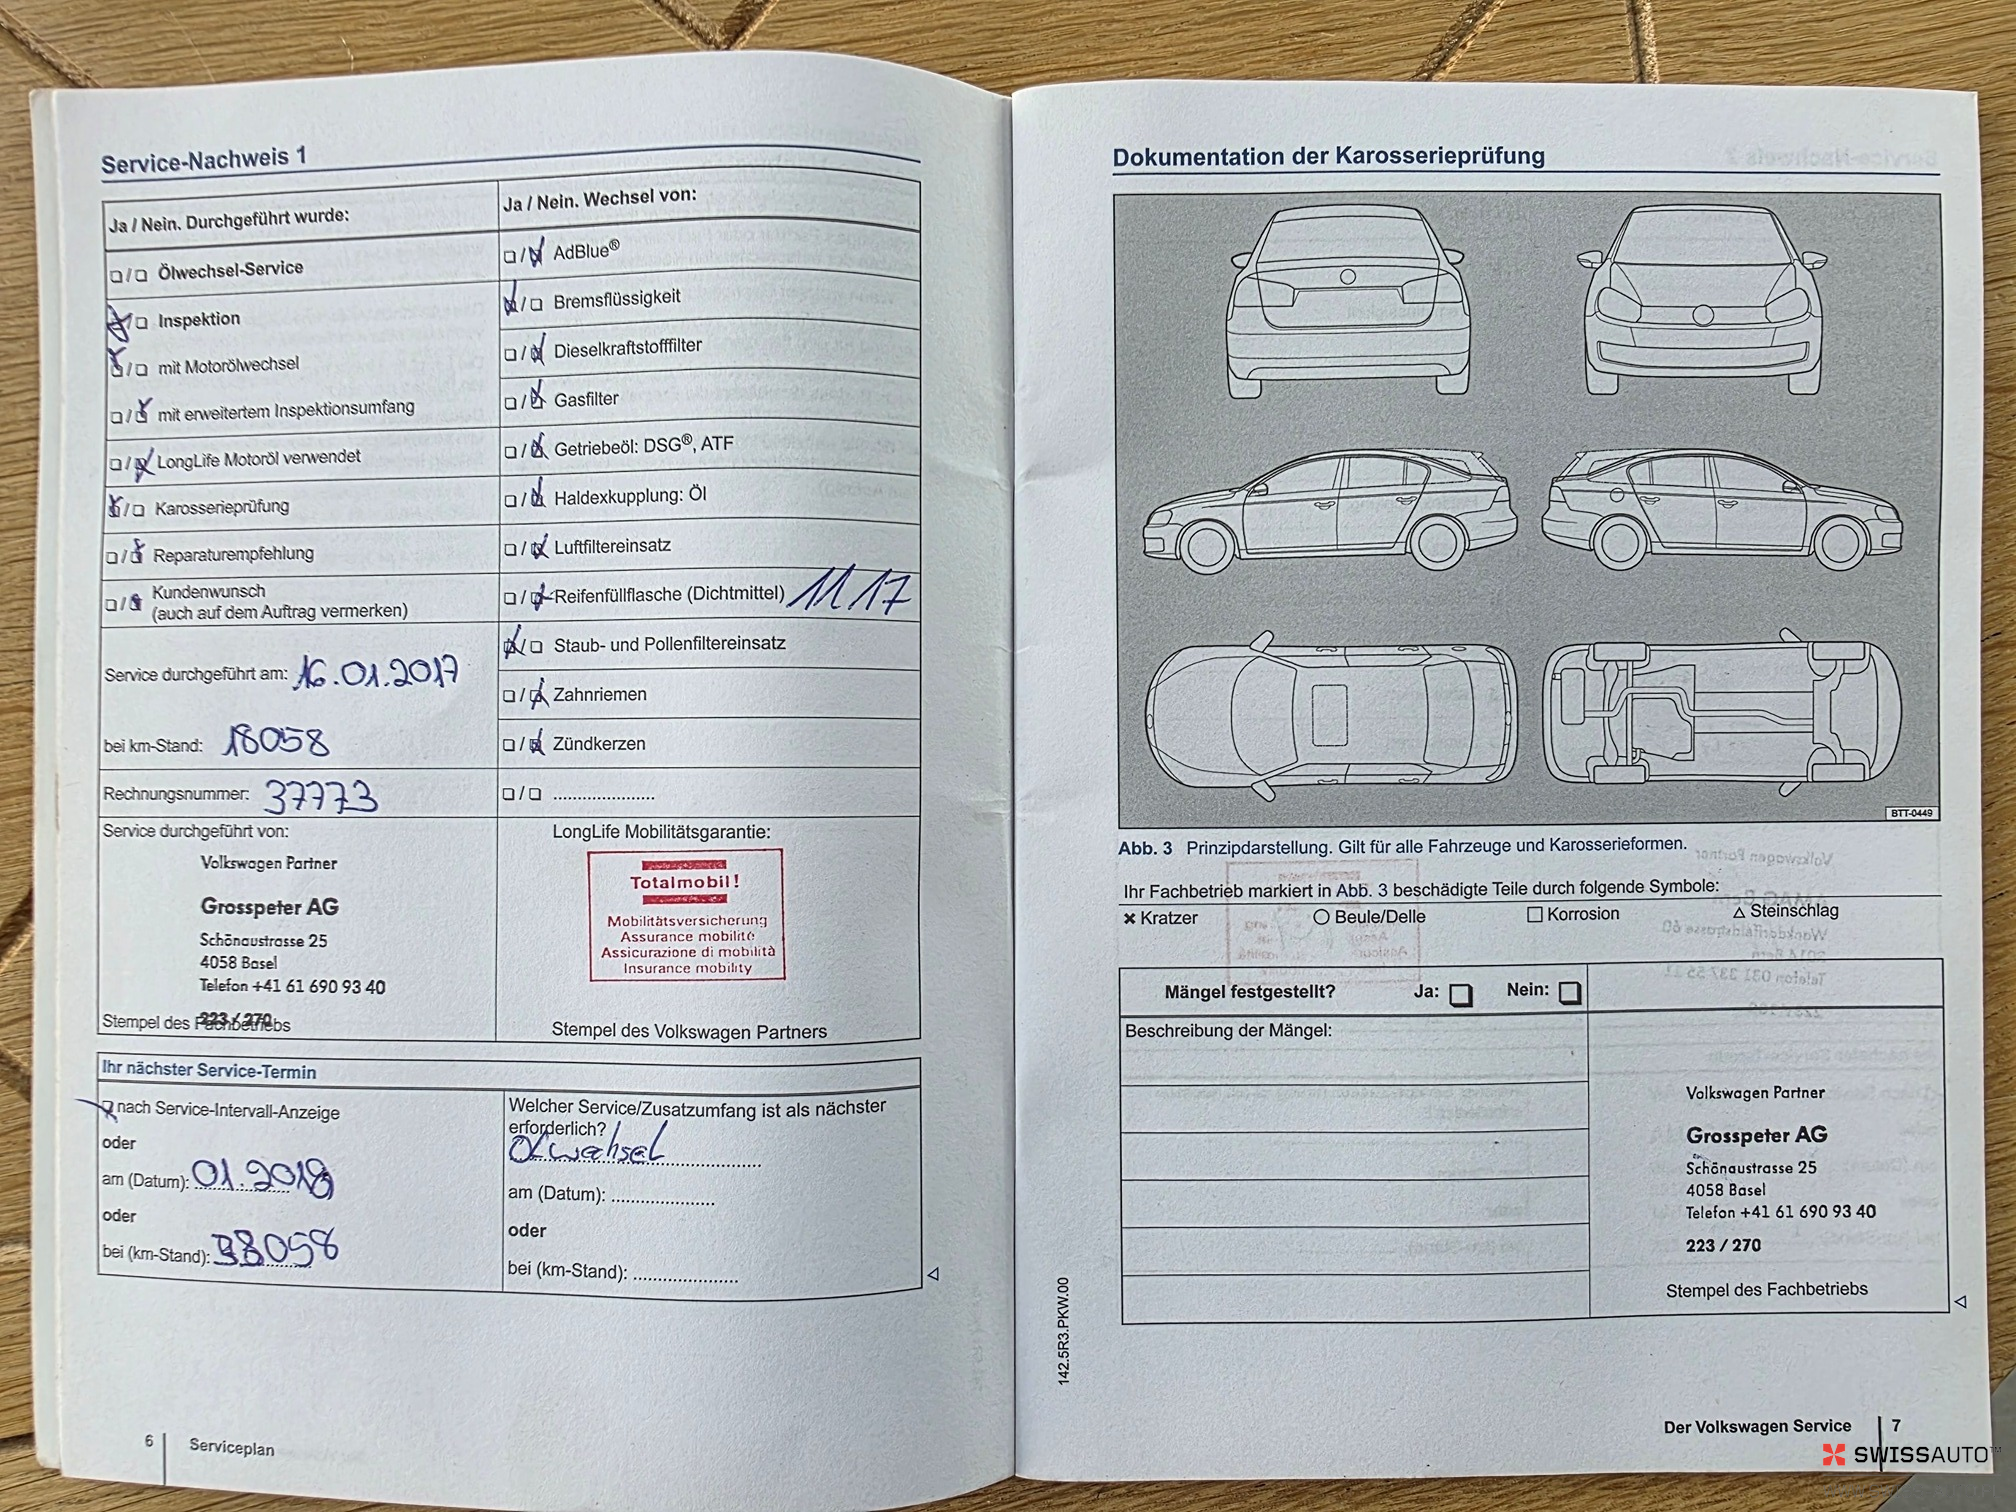 Service-Nachweis 1
Ja / Nein. Durchgeführt wurde:
Ölwechsel-Service
Inspektion
mit Motorölwechsel
mit erweitertem Inspektionsumfang
LongLife Motoröl verwendet
Karosserieprüfung
Reparaturempfehlung
Kundenwunsch
(auch auf dem Auftrag vermerken)
Service durchgeführt am: 16.01.2017
bei km-Stand: 18058
Rechnungsnummer: 37773
Service durchgeführt von:
Volkswagen Partner
Grosspeter AG
Schönaustrasse 25
4058 Basel
Telefon +41 61 690 93 40
223 / 270
Stempel des Fachbetriebs
Ja / Nein. Wechsel von:
AdBlue®
Bremsflüssigkeit
Dieselkraftstofffilter
Gasfilter
Getriebeöl: DSG®, ATF
Haldexkupplung: Öl
Luftfiltereinsatz
Reifenfüllflasche (Dichtmittel) 11 17
Staub- und Pollenfiltereinsatz
Zahnriemen
Zündkerzen
LongLife Mobilitätsgarantie:
Totalmobil!
Mobilitätsversicherung
Assurance mobilité
Assicurazione di mobilità
Insurance mobility
Stempel des Volkswagen Partners
Ihr nächster Service-Termin
nach Service-Intervall-Anzeige
oder
am (Datum): 01.2018
oder
bei (km-Stand): 33058
Welcher Service/Zusatzumfang ist als nächster
erforderlich?
Ölwechsel
am (Datum):
oder
bei (km-Stand):
6 Serviceplan
Dokumentation der Karosserieprüfung
BTT-0449
Abb. 3 Prinzipdarstellung. Gilt für alle Fahrzeuge und Karosserieformen.
Ihr Fachbetrieb markiert in Abb. 3 beschädigte Teile durch folgende Symbole:
Kratzer Beule/Delle Korrosion Steinschlag
Mängel festgestellt? Ja: Nein:
Beschreibung der Mängel:
Volkswagen Partner
Grosspeter AG
Schönaustrasse 25
4058 Basel
Telefon +41 61 690 93 40
223 / 270
Stempel des Fachbetriebs
142.5R3.PKW.00
Der Volkswagen Service 7
SWISSAUTO™